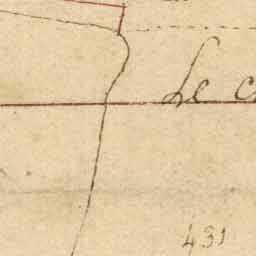 Le
431